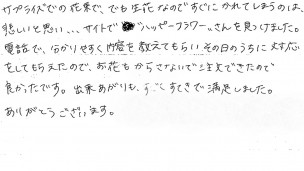 サプライズでの花束で、でも生花なのですぐにかれてしまうのは、
悲しいと思い...、サイトで"ハッピーフラワー"さんを見つけました。
電話で、分かりやすく内容を教えてもらいその日のうちに対応
をしてもらえたので、お花もからさないで注文できたので
良かったです。出来あがりも、すごくすてきで満足しました。
ありがとうございます。